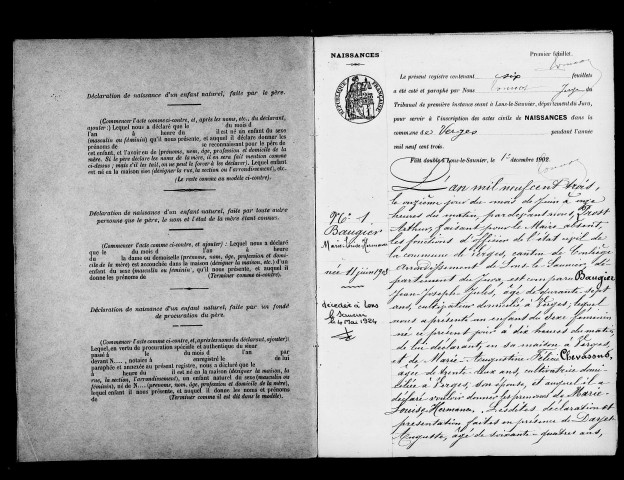 Déclaration de naissance d'un enfant naturel, faite par le père.
(Commencer l'acte comme ci-contre, et, après les noms, etc., du déclarant,
ajouter :) Lequel nous a déclaré que le du mois d
l'an à heure du est né un enfant du sexe
(masculin ou féminin) qu'il nous présente, et auquel il déclare donner les
prénoms de se reconnaissant pour le père de
cet enfant, et l'avoir eu de (prénoms, nom, âge, profession et domicile de la
mère. Si le père déclare les nom de la mère, il en sera fait mention comme
ci-dessus ; mais s'il les tait, on ne peut le forcer à les déclarer). Lequel enfant
est né en la maison sise (désigner la rue, la section ou l'arrondissement), etc.
(Le reste comme au modèle ci-contre).
Déclaration de naissance d'un enfant naturel, faite par toute autre
personne que le père, le nom et l'état de la mère étant connus.
(Commencer l'acte comme ci-contre, et ajouter) : Lequel nous a déclaré
que le du mois d l'an à heure
du la dame ou demoiselle (prénoms, nom, âge, profession et domi-
cile de la mère) est accouchée dans la maison (désigner la maison, etc.) d'un
enfant du sexe (masculin ou féminin) qu'il nous présente, et auquel il donne
les prénoms de (Terminer comme ci-contre).
Déclaration de naissance d'un enfant naturel, faite par un fondé
de procuration du père.
(Commencer l'acte comme ci-contre, et, après les noms du déclarant, ajouter):
Lequel, en vertu de procuration spéciale et authentique de sieur
passé à le du mois d l'an par
devant N...., notaires à enregistré le de lui
paraphée et annexée au présent registre, nous a déclaré que le
à heure du il est né en la maison (désigner la maison, la
rue, la section, l'arrondissement), un enfant naturel du sexe (masculin ou
féminin), né de N.... (prénoms, nom, âge, profession et domicile de la mère),
lequel enfant il nous présente, et auquel il donne les noms et prénoms
de (Terminer comme il est dit dans le modèle).
NAISSANCES
Premier feuillet.
RÉPUBLIQUE FRANÇAISE
Le présent registre contenant six feuillets
a été coté et paraphé par Nous Juge du
Tribunal de première instance séant à Lons-le-Saunier, département du Jura,
pour servir à l'inscription des actes civils de NAISSANCES dans la
commune de Verges pendant l'année
mil neuf cent trois.
Fait double à Lons-le-Saunier, le 1er décembre 1902.
N° 1.
Baugier
Marie Louise Hermance
née 11 juin 1903
décédée à Lons
le Saunier
le 4 Mai 1984
L'an mil neuf cent trois,
le onzième jour du mois de Juin à onze
heures du matin, pardevant nous, Prost
Arthur, faisant pour le Maire absent,
les fonctions d'officier de l'état civil de
la commune de Verges, canton de Conliège
arrondissement de Lons-le-Saunier,
département du Jura, est comparu Baugier
Jean-Joseph Jules, âgé de quarante-
ans, cultivateur domicilié à Verges; lequel
nous a présenté un enfant du sexe féminin
né ce présent jour à dix heures du matin,
de lui déclarant, en sa maison à Verges,
et de Marie-Augustine Félicie Chevassus,
âgée de trente-deux ans, cultivatrice domi-
ciliée à Verges, son épouse, et auquel il a
déclaré vouloir donner les prénoms de Marie-
Louise-Hermance. Lesdites déclaration et
présentation faites en présence de
Auguste, âgé de soixante-quatre ans,